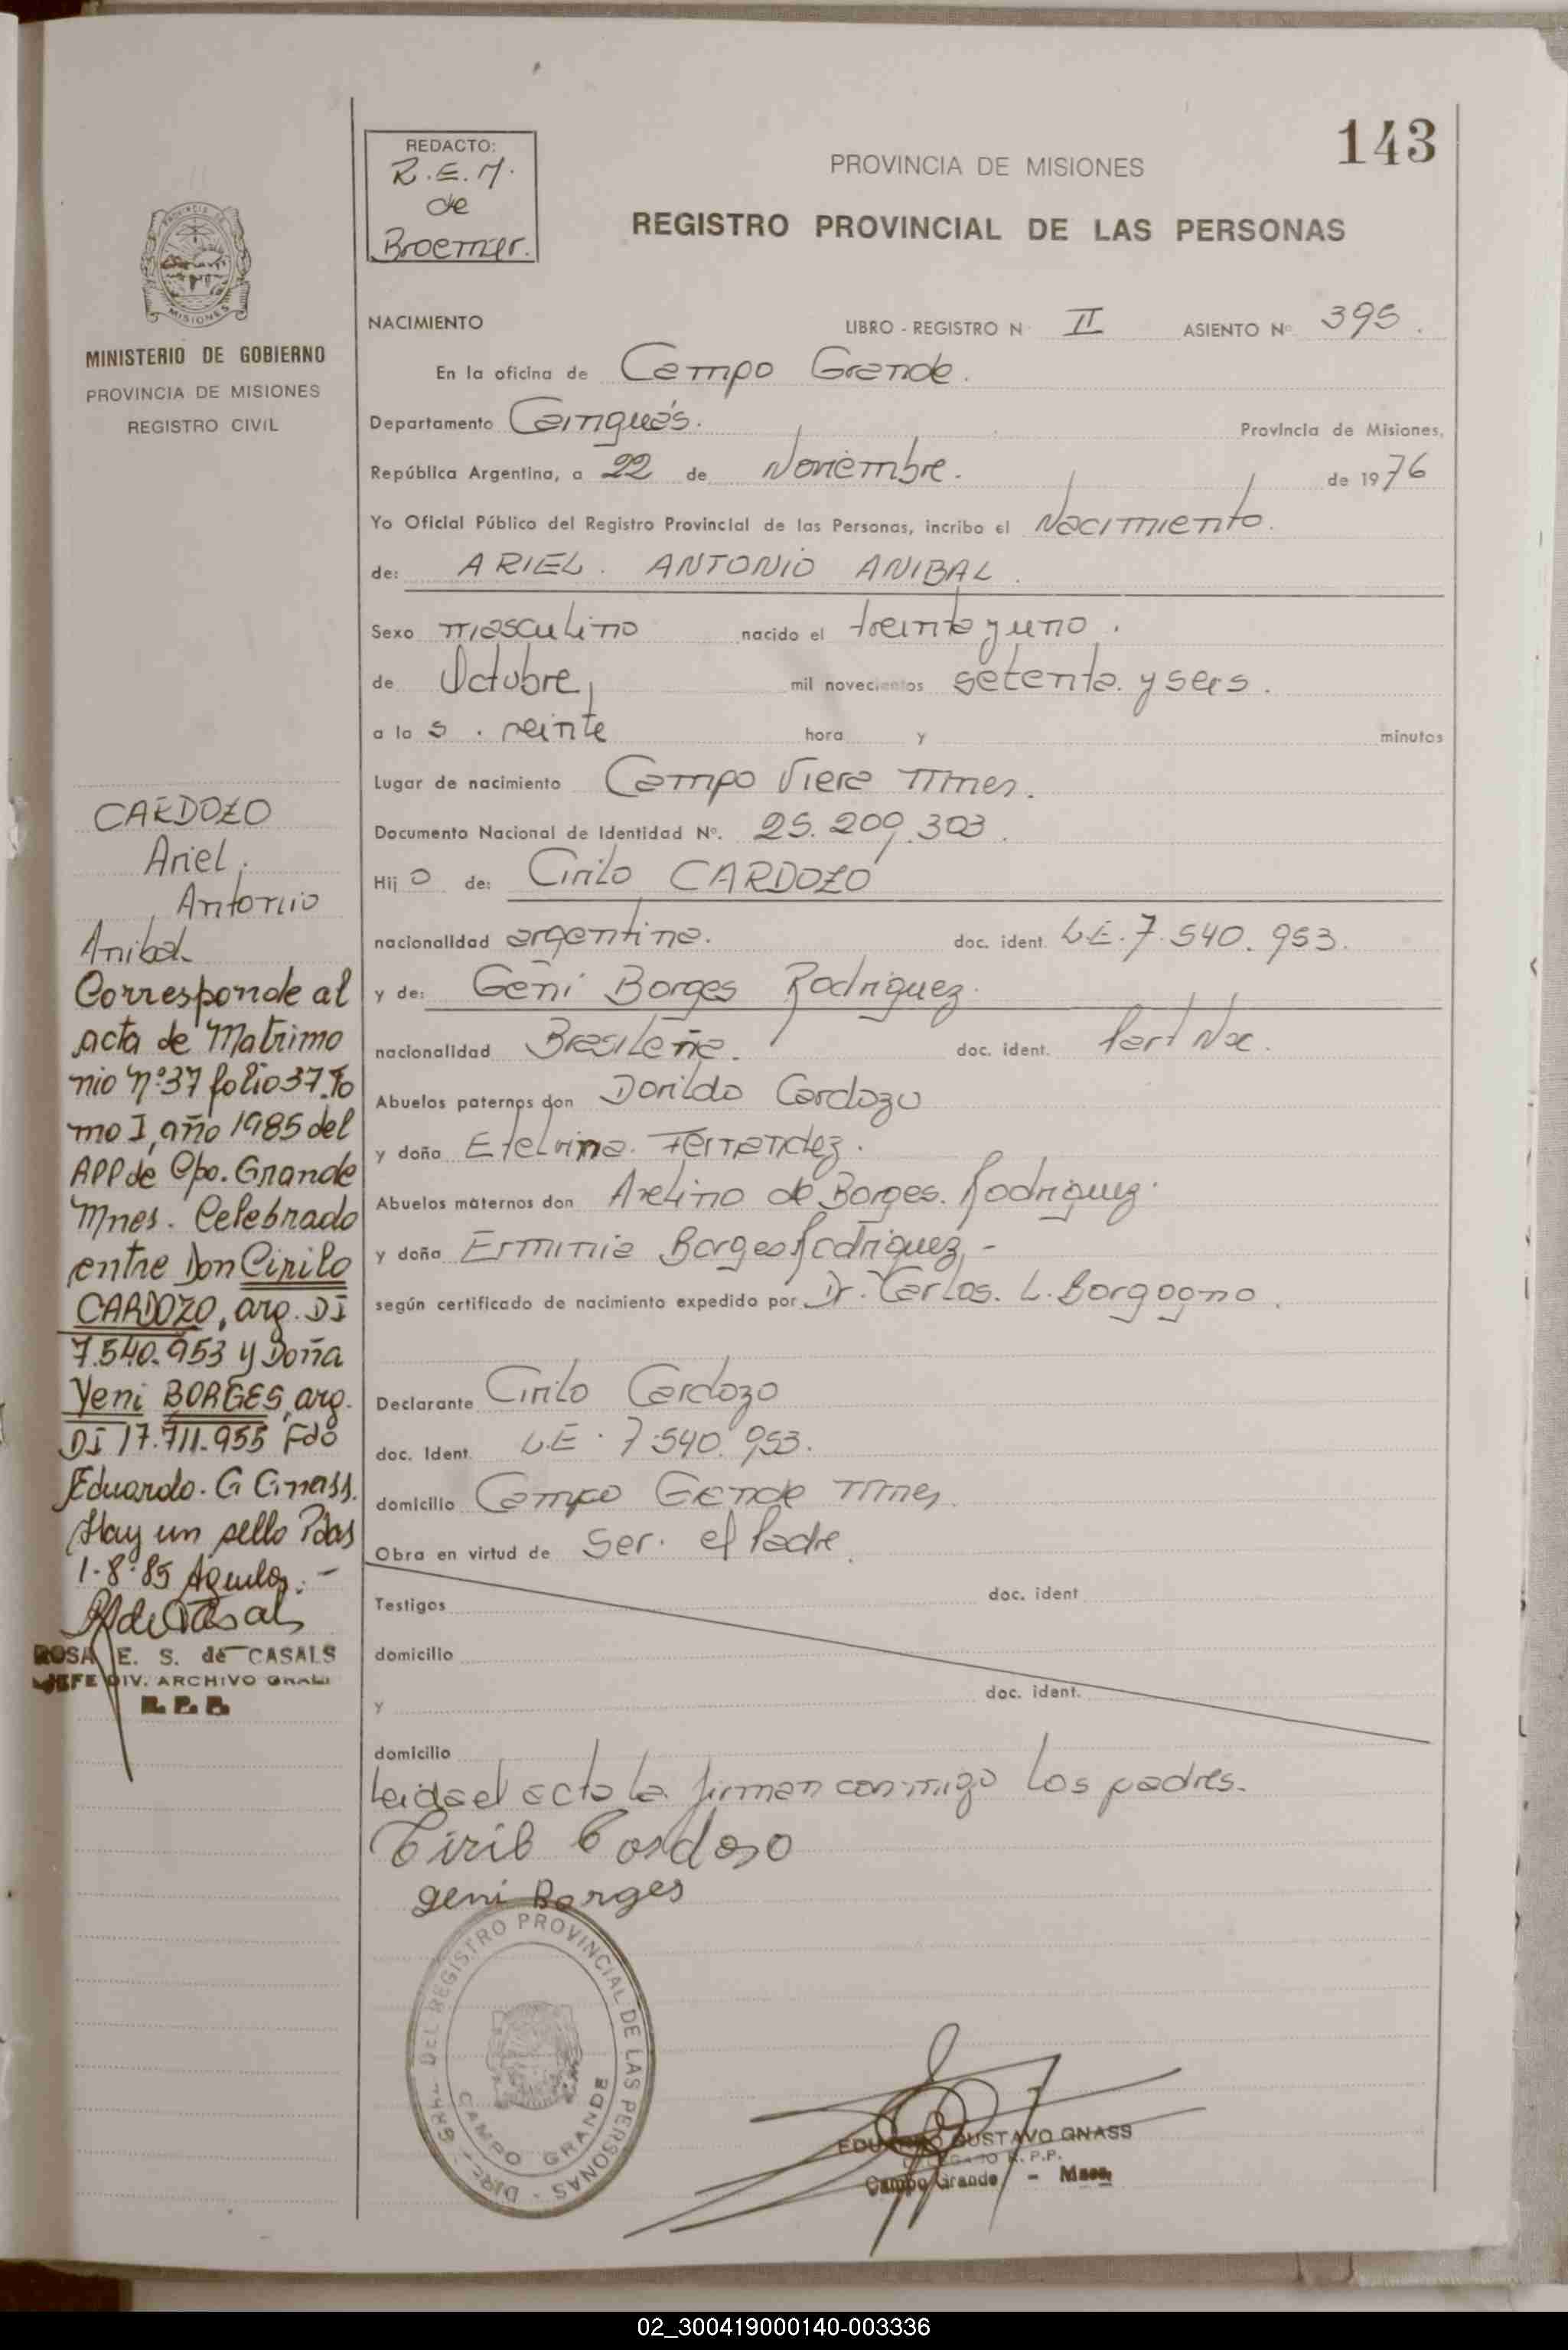 143
REDACTO:
R.E.M.
de
Broemer.
PROVINCIA DE MISIONES
REGISTRO PROVINCIAL DE LAS PERSONAS
MISIONES
MINISTERIO DE GOBIERNO
PROVINCIA DE MISIONES
REGISTRO CIVIL
NACIMIENTO LIBRO - REGISTRO N II ASIENTO Nº 395.
En la oficina de Campo Grande.
Departamento Caingués. Provincia de Misiones,
República Argentina, a 22 de Noviembre. de 1976
Yo Oficial Público del Registro Provincial de las Personas, incribo el Nacimiento.
de: ARIEL. ANTONIO ANIBAL.
Sexo masculino nacido el treinta y uno.
de Octubre, mil novecientos setenta. y seis.
a la s. veinte hora y minutos
Lugar de nacimiento Campo Viera Mnes.
Documento Nacional de Identidad Nº. 25.209.303.
Hij o de: Cirilo CARDOZO
nacionalidad argentina. doc. ident. L.E. 7.540.953.
y de: Geni Borges Rodriguez.
nacionalidad Brasileña. doc. ident. Part Nac.
Abuelos paternos don Dorildo Cardozo
y doña Etelvina. Fernandez.
Abuelos maternos don Avelino de Borges. Rodriguez.
y doña Erminia Borges Rodriguez, -
según certificado de nacimiento expedido por Dr. Carlos. L. Borgogno.
Declarante Cirilo Cardozo
doc. Ident. L.E. 7.540.953.
domicilio Campo Grande Mnes.
Obra en virtud de Ser. el Padre.
Testigos doc. ident
domicilio
y doc. ident.
domicilio
Leida el acta la firman conmigo los padres.
Cirilo Cardoso
geni Borges
CARDOZO
Ariel.
Antonio
Anibal.
Corresponde al
acta de Matrimo
nio nº37 folio 37. To
mo I, año 1985 del
APP de Cpo. Grande
Mnes. Celebrado
entre Don Cirilo
CARDOZO, arg. DI
7.540.953 y Doña
Yeni BORGES, arg.
DI 17.711.955 Fdo
Eduardo. G Gnass.
Hay un sello Pdas
1-8-85 Aguila. -
ROSA E. S. de CASALS
JEFE DIV. ARCHIVO GRAL
R.P.P.
DIRE- GRAL. DEL REGISTRO PROVINCIAL DE LAS PERSONAS -
CAMPO GRANDE
EDUARDO GUSTAVO GNASS
DELEGADO R.P.P.
Campo Grande - Mnes.
02_300419000140-003336